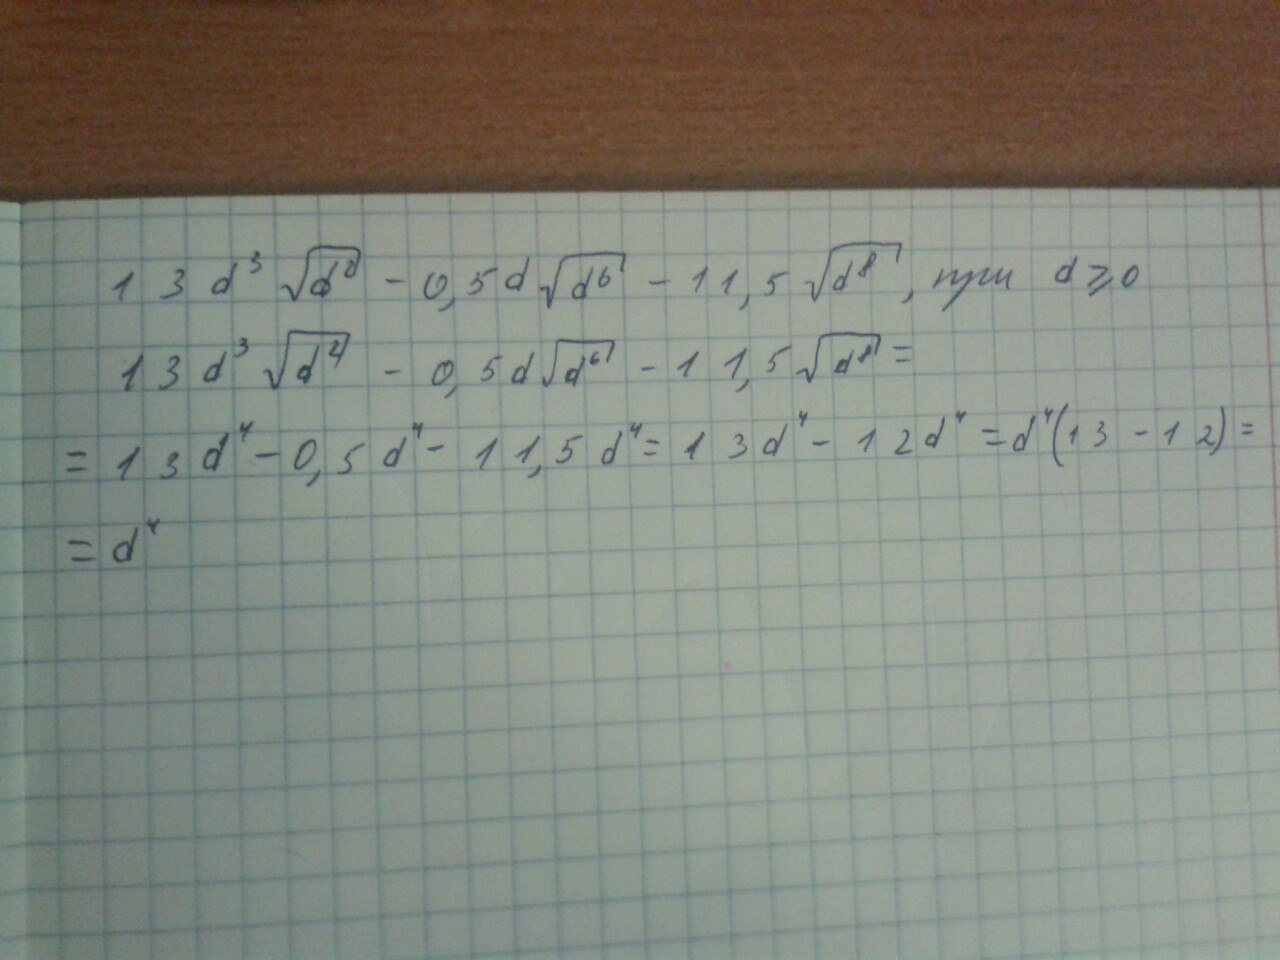 13d³√d² - 0,5d√d⁶ - 11,5√d⁸, при d ⩾ 0
13d³√d² - 0,5d√d⁶ - 11,5√d⁸ =
= 13d⁴ - 0,5d⁴ - 11,5d⁴ = 13d⁴ - 12d⁴ = d⁴(13 - 12) =
= d⁴